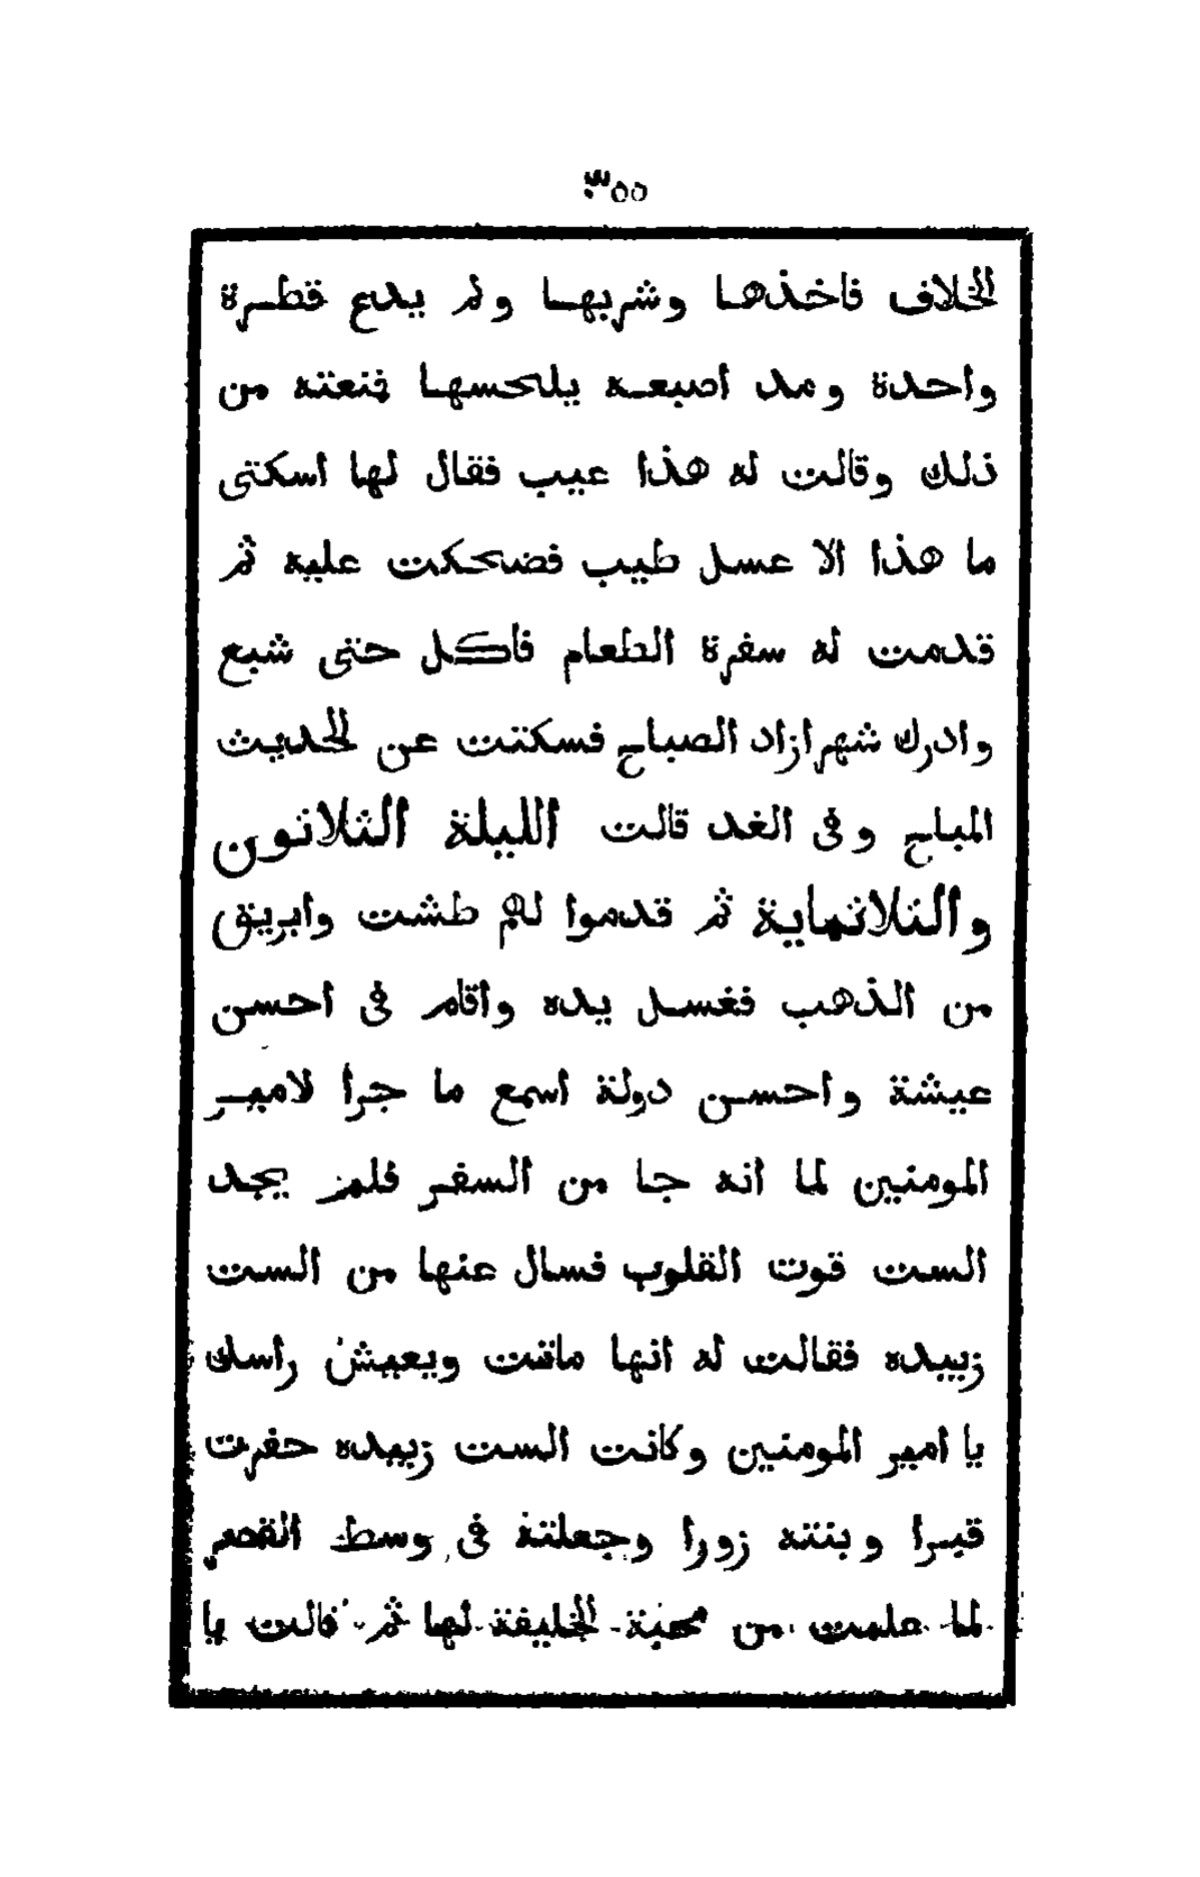 ٣٥٥
الخلاف فاخذها وشربها ولم يدع قطرة
واحدة ومد اصبعه يلحسها فنعته من
ذلك وقالت له هذا عيب فقال لها اسكتى
ما هذا الا عسل طيب فضحكت عليه ثم
قدمت له سفرة الطعام فاكل حتى شبع
وادرك شهرازاد الصباح فسكتت عن الحديث
المباح وفى الغد قالت الليلة الثلاثون
والثلاثماية ثم قدموا لهم طشت وابريق
من الذهب فغسل يده واقام فى احسن
عيشة واحسن دولة اسمع ما جرا لامير
المومنين لما انه جا من السفر فلم يجد
الست قوت القلوب فسال عنها من الست
زبيده فقالت له انها ماتت ويعيش راسك
يا امير المومنين وكانت الست زبيده حفرت
قبرا وبنته زورا وجعلته فى وسط القصر
لما علمت من محبة الخليفة لها ثم قالت يا